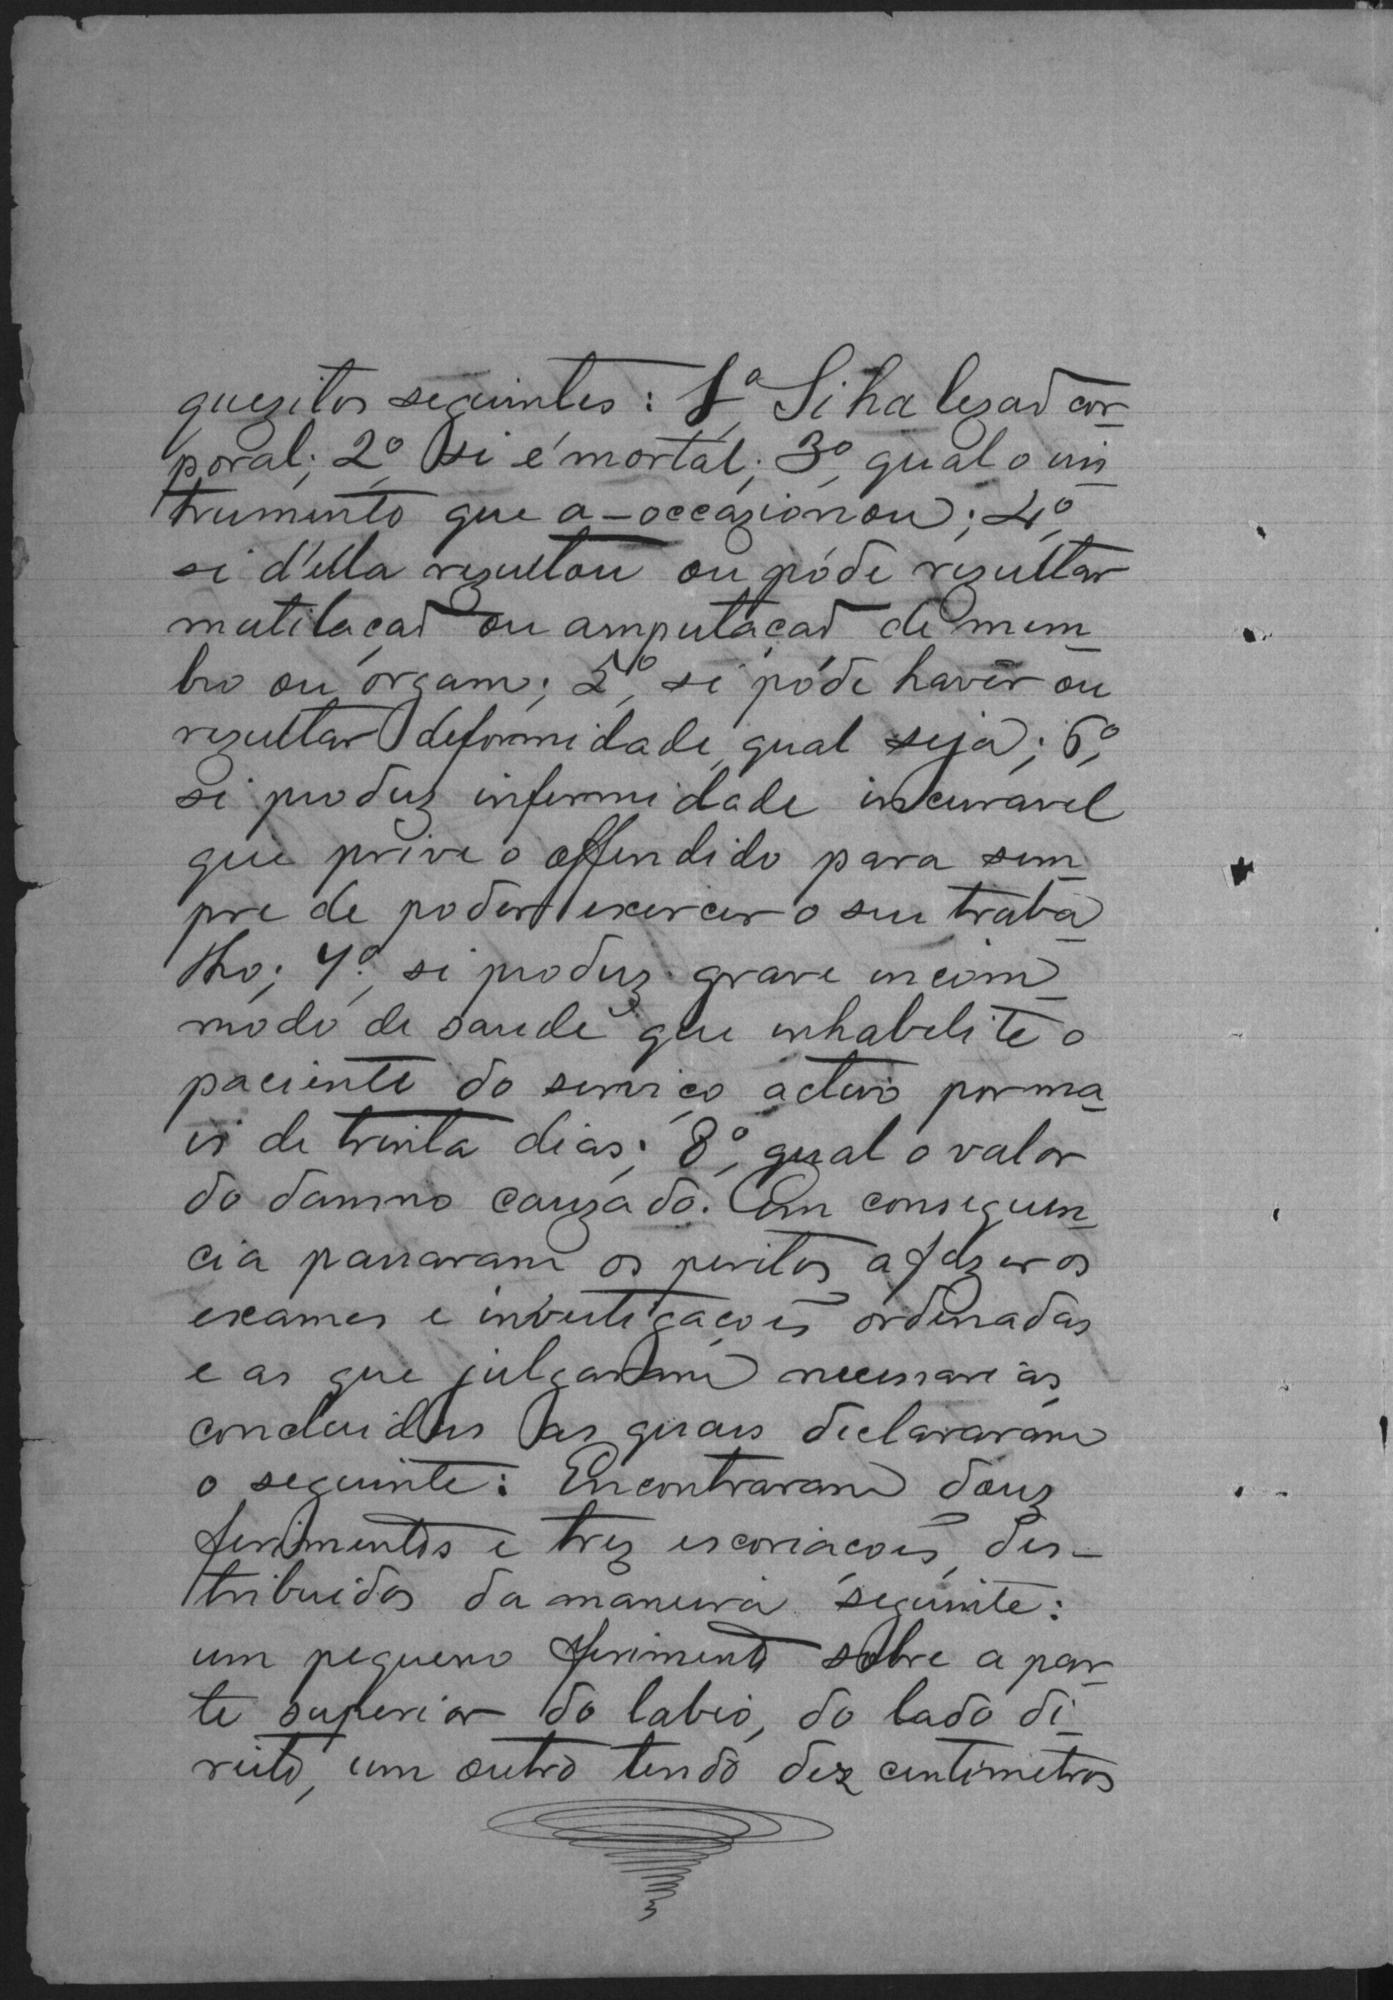 quezitos seguintes: 1º Si ha lezaõ cor-
poral; 2º, si é mortal; 3º, qual o ins-
trumento que a-occazionou; 4º,
si d'ella rezultou ou póde rezultar
mutilaçaõ ou amputaçaõ de mem-
bro ou órgam; 5º, si póde haver ou
rezultar deformidade, qual seja; 6º,
si produz infermidade incuravel
que prive o offendido para sem-
pre de poder exercer o seu traba-
lho; 7º, si produz grave incom-
modo de saude que inhabelite o
paciente do serviço activo por ma-
is de trinta dias; 8º, qual o valor
do damno cauzado. Em consequen-
cia passaram os peritos a fazer os
exames e investigaçoẽs ordenadas
e as que julgaram necessarias,
concluidas as quais declararam
o seguinte: Encontraram douz
ferimentos e trez escoriaçoẽs, des-
tribuidos da maneira seguinte:
um pequeno ferimento sobre a par-
te superior do labio, do lado di-
reito, um outro tendo dez centimetros